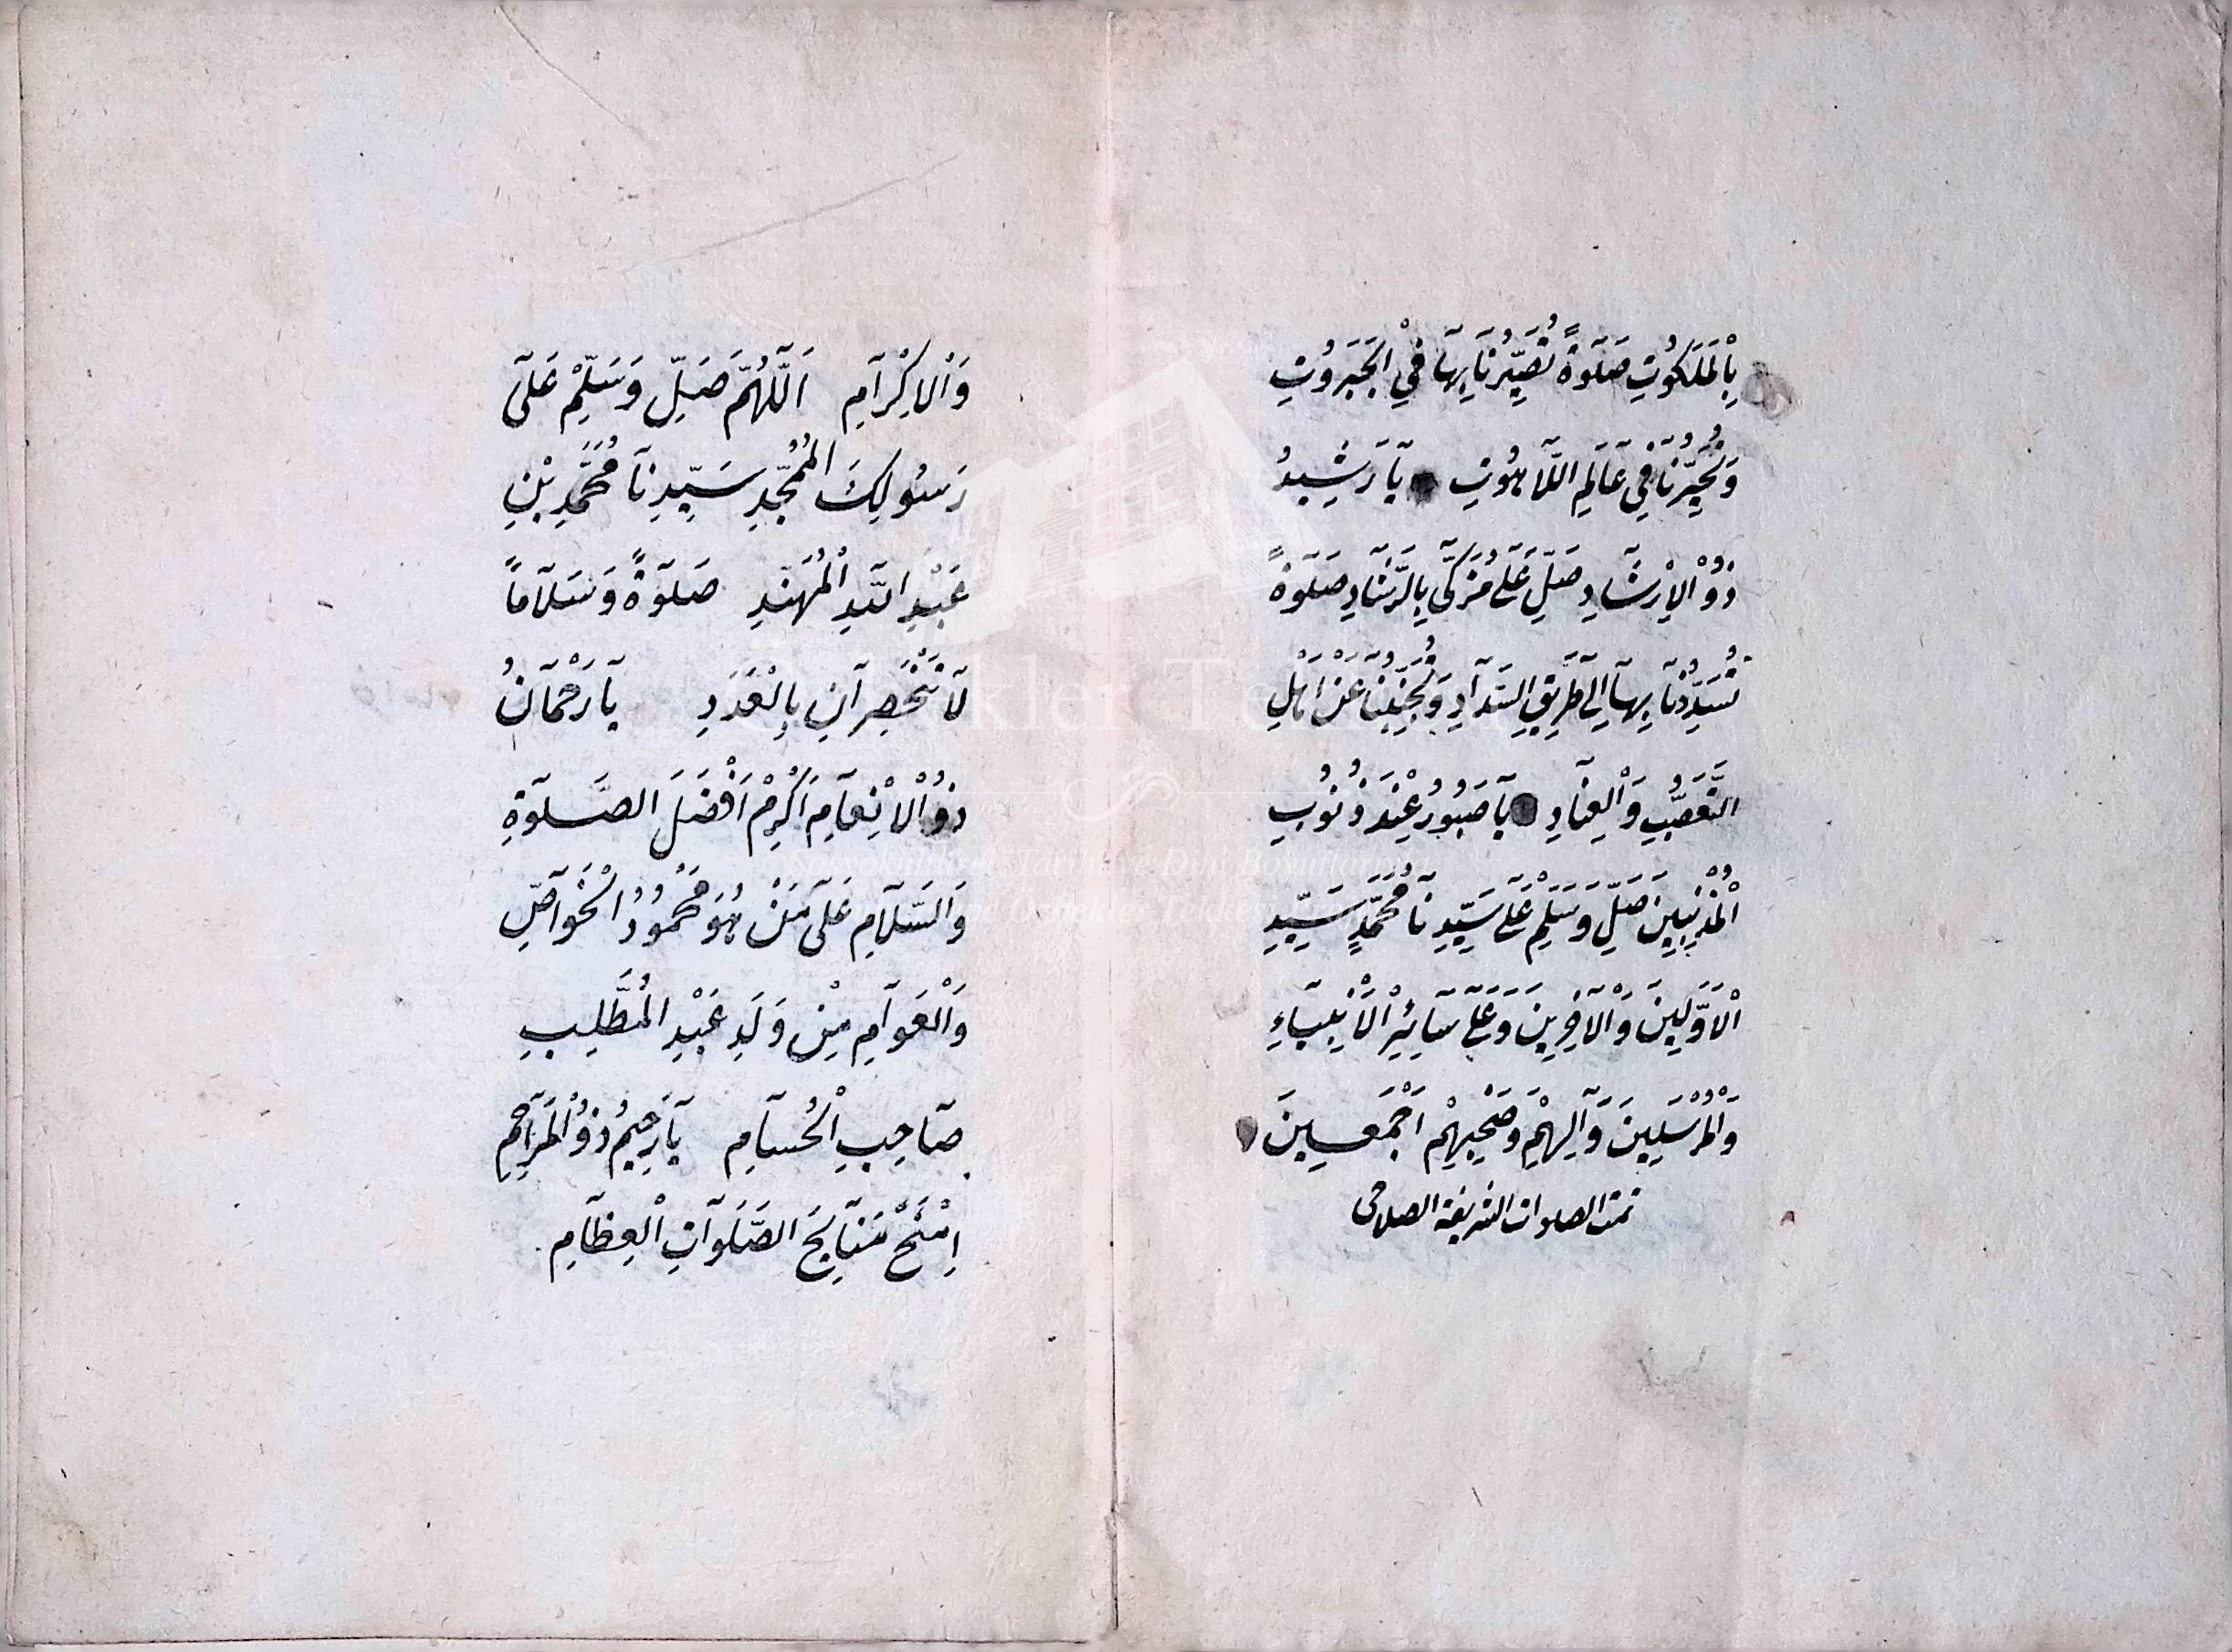 بِالْمَلَكُوتِ صَلٰوةً تُصَيِّرُنَا بِهَا فِي الْجَبَرُوتِ
وَتُحَيِّرُنَا فِي عَالَمِ اللَّاهُوتِ يَا رَشِيدُ
ذُو الْاِرْشَادِ صَلِّ عَلٰى مُزَكّٰى بِالرَّشَادِ صَلٰوةً
تُسَدِّدُنَا بِهَا اِلٰى طَرِيقِ السَّدَادِ وَتُجَنِّبُنَا عَنْ اَهْلِ
التَّعَصُّبِ وَالْعِنَادِ يَا صَبُورُ عِنْدَ ذُنُوبِ
الْمُذْنِبِينَ صَلِّ وَسَلِّمْ عَلٰى سَيِّدِنَا مُحَمَّدٍ سَيِّدِ
الْاَوَّلِينَ وَالْاٰخِرِينَ وَعَلٰى سَائِرِ الْاَنْبِيَاءِ
وَالْمُرْسَلِينَ وَاٰلِهِمْ وَصَحْبِهِمْ اَجْمَعِينَ
تمت الصلوات الشريفة الصلاحى
وَالْاِكْرَامِ اَللّٰهُمَّ صَلِّ وَسَلِّمْ عَلٰى
رَسُولِكَ الْمُمَجَّدِ سَيِّدِنَا مُحَمَّدِ بْنِ
عَبْدِ اللّٰهِ الْمُهَنَّدِ صَلٰوةً وَسَلَامًا
لَا تَنْحَصِرَانِ بِالْعَدَدِ يَا رَحْمَانُ
ذُو الْاِنْعَامِ اَكْرِمْ اَفْضَلَ الصَّلٰوةِ
وَالسَّلَامِ عَلٰى مَنْ هُوَ مَحْمُودُ الْخَوَاصِّ
وَالْعَوَامِ مِنْ وَلَدِ عَبْدِ الْمُطَّلِبِ
صَاحِبِ الْحُسَامِ يَا رَحِيمُ ذُو الْمَرَاحِمِ
اِمْنَحْ مَنَايِحَ الصَّلَوَاتِ الْعِظَامِ